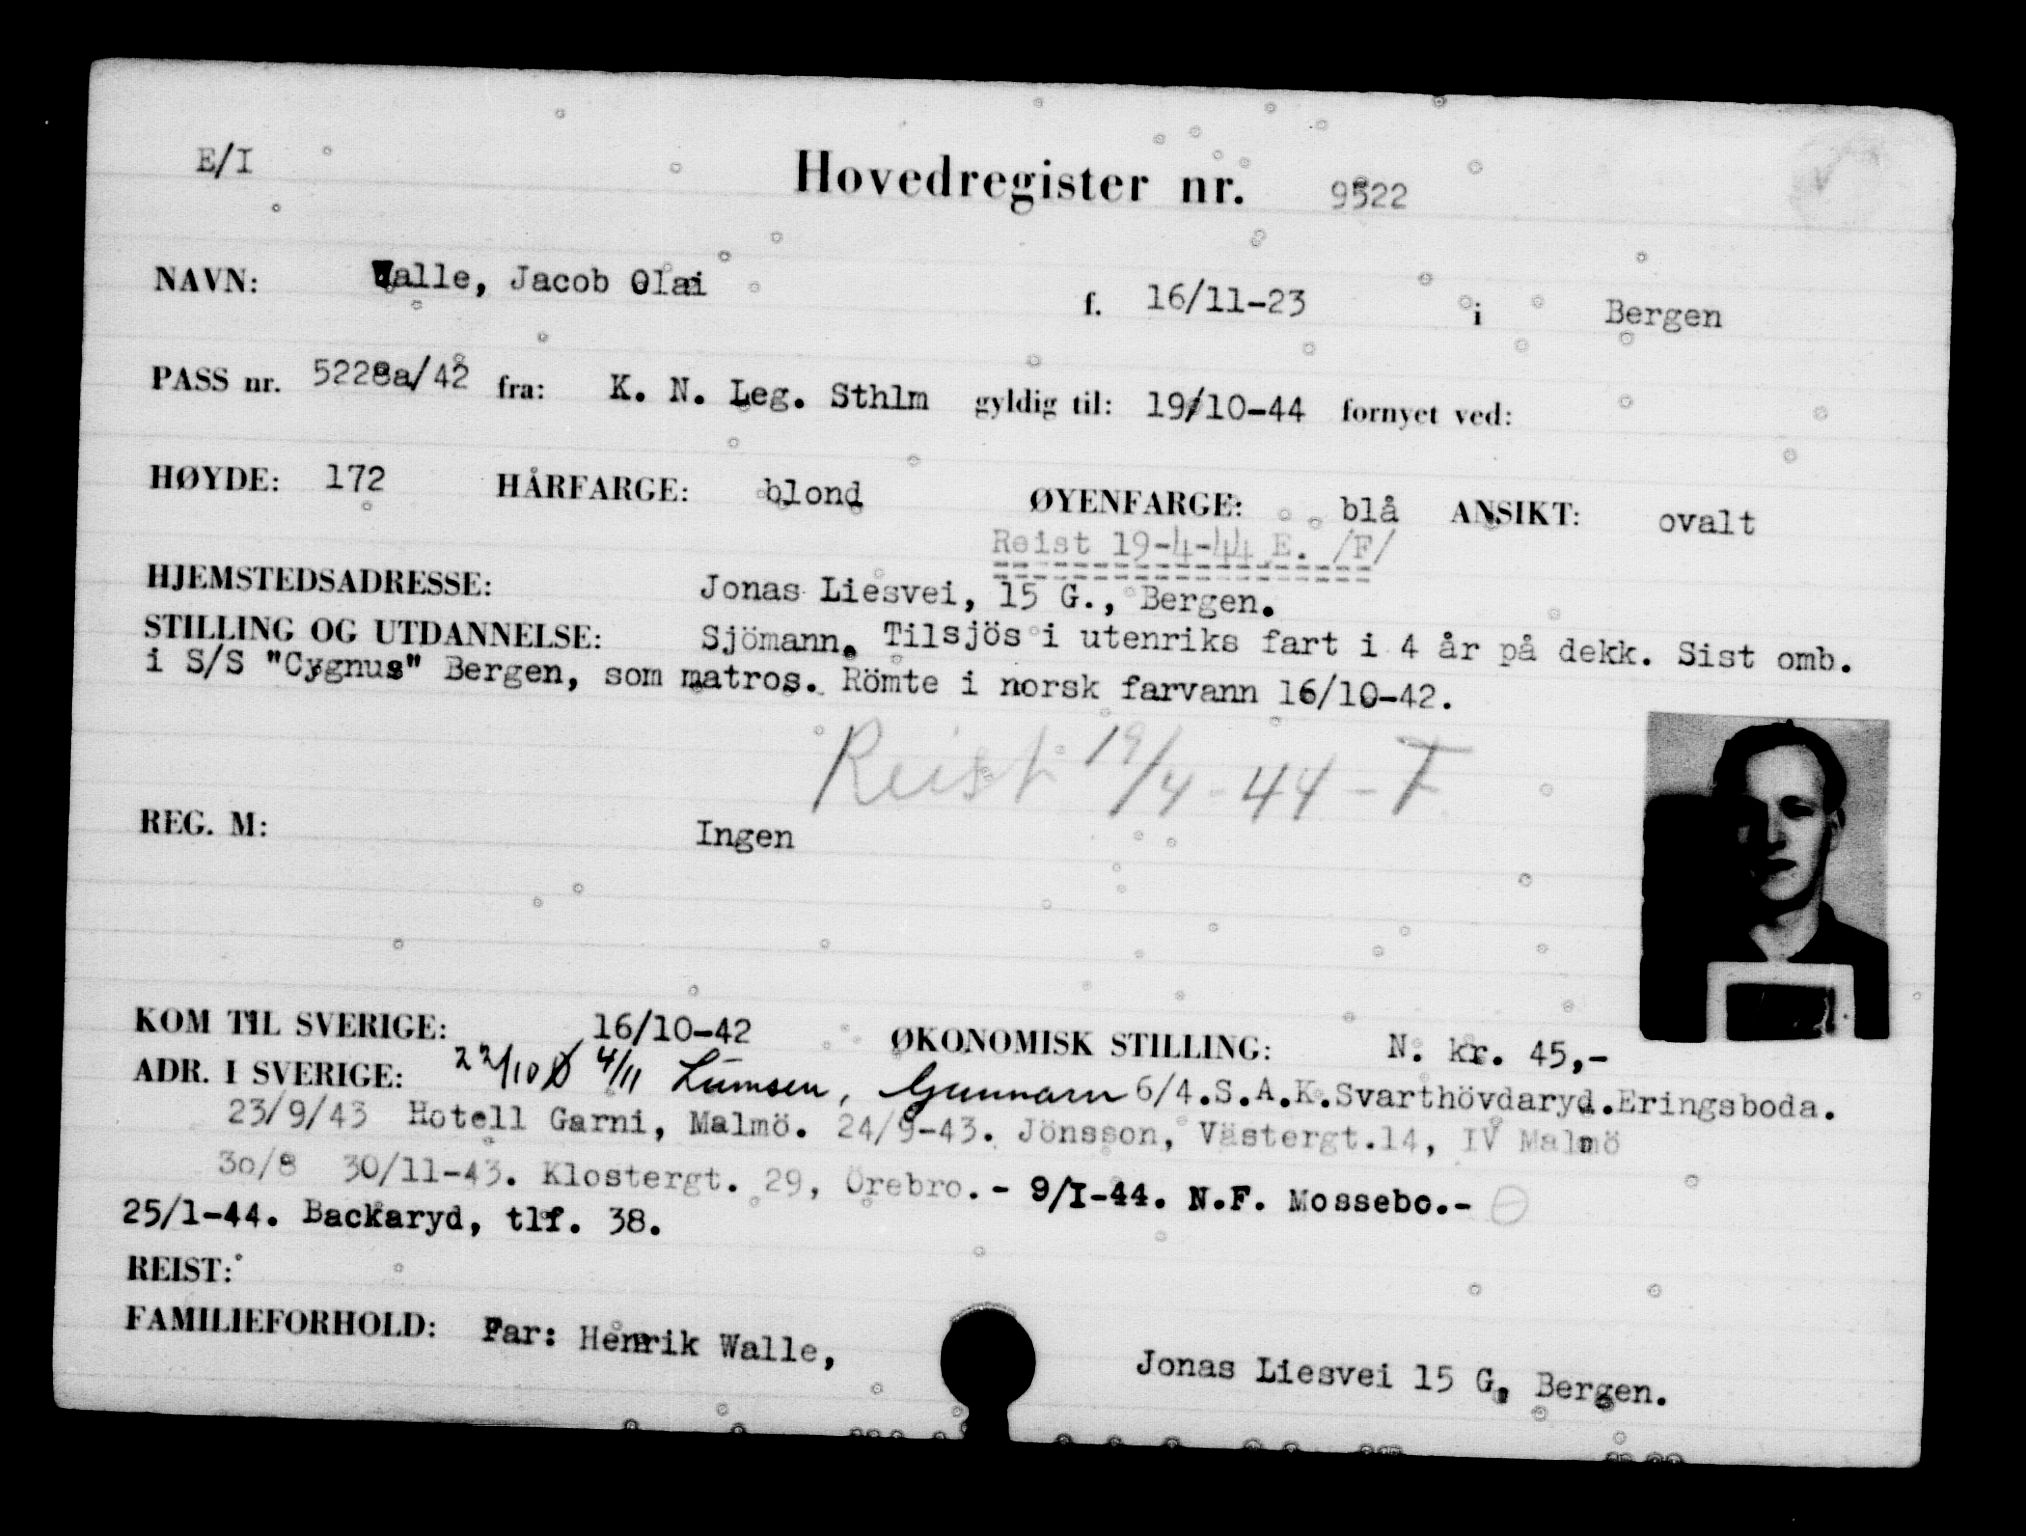 E/I Hovedregister nr. 9522
NAVN: Walle, Jacob Olai f. 16/11-23 i Bergen
PASS nr. 5228a/42 fra: K. N. Leg. Sthlm gyldig til: 19/10-44 fornyet ved:
HØYDE: 172 HÅRFARGE: blond ØYENFARGE: blå ANSIKT: ovalt
Reist 19-4-44 E. /F/
HJEMSTEDSADRESSE: Jonas Liesvei, 15 G., Bergen.
STILLING OG UTDANNELSE: Sjömann. Tilsjös i utenriks fart i 4 år på dekk. Sist omb.
i S/S "Cygnus" Bergen, som matros. Römte i norsk farvann 16/10-42.
Reist 19/4-44-F
REG. M: Ingen
KOM TIL SVERIGE: 16/10-42 ØKONOMISK STILLING: N. kr. 45,-
ADR. I SVERIGE: 22/10 Ø 4/11 Lumsen, Gunnarn 6/4.S.A.K.Svarthövdaryd.Eringsboda.
23/9/43 Hotell Garni, Malmö. 24/9-43. Jönsson, Västergt.14, IV Malmö
30/8 30/11-43. Klostergt. 29, Örebro.- 9/I-44. N.F. Mossebo.-
25/1-44. Backaryd, tlf. 38.
REIST:
FAMILIEFORHOLD: Far: Henrik Walle, Jonas Liesvei 15 G, Bergen.